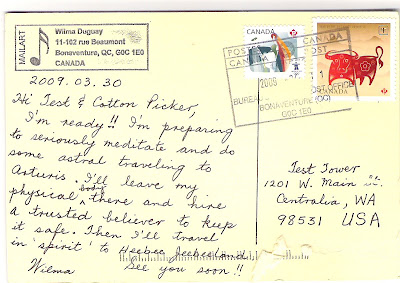 MAILART
Wilma Duguay
11-102 rue Beaumont
Bonaventure, QC, G0C 1E0
CANADA
2009.03.30
Hi Test & Cotton Picker,
I'm ready!! I'm preparing
to seriously meditate and do
some astral traveling to
Arturis. I'll leave my
physical body there and hire
a trusted believer to keep
it safe. Then I'll travel
in 'spirit' to Heebee Jeebieland.
Wilma See you soon!!
CANADA
POST
CANADA
POST
BUREAU
OFFICE
BONAVENTURE (QC)
G0C 1E0
CANADA
P
Test Tower
1201 W. Main St.
Centralia, WA
98531 USA